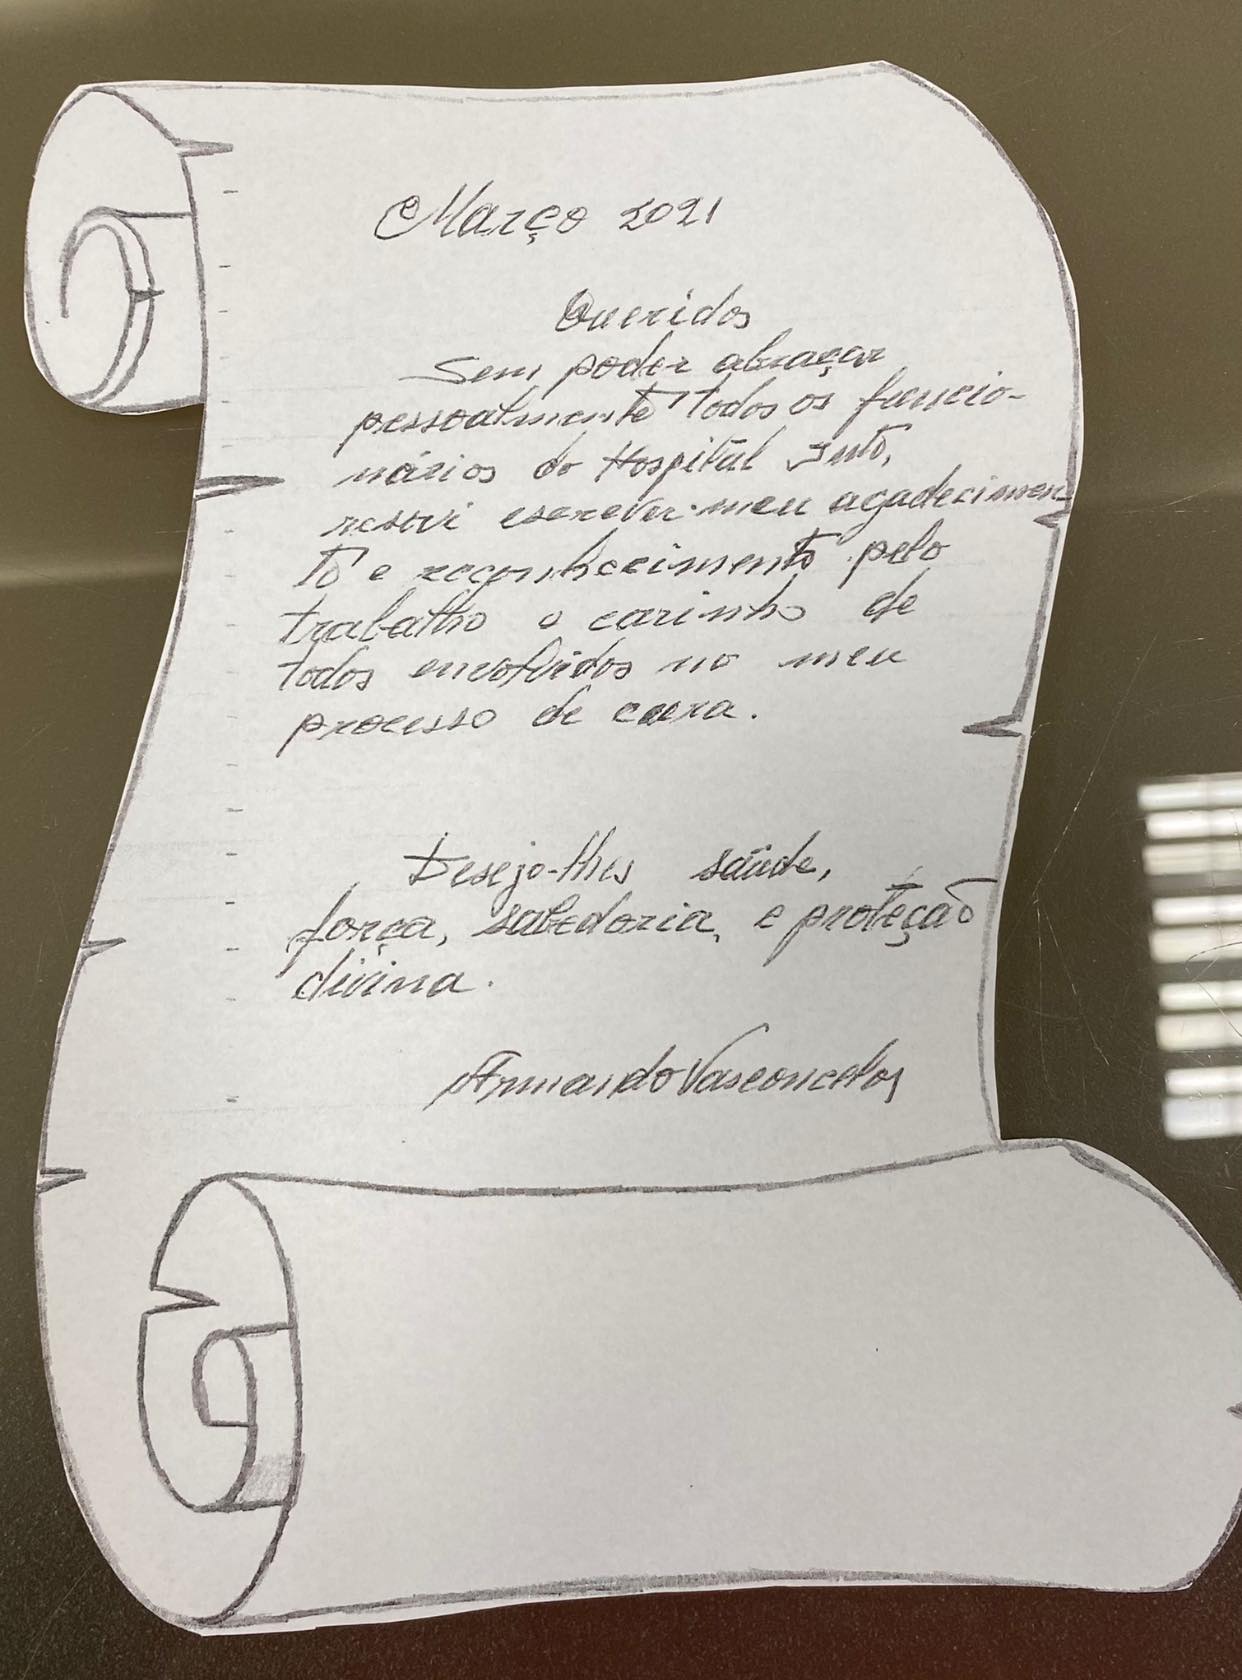 Março 2021
Queridos
Sem poder abraçar
pessoalmente todos os funcio-
nários do Hospital Into,
resovi escrever meu agadecimen
to e reconhecimento pelo
trabalho e carinho de
todos envolvidos no meu
processo de cura.
Desejo-lhes saúde,
força, sabedoria, e proteção
divina.
Armando Vasconcelos